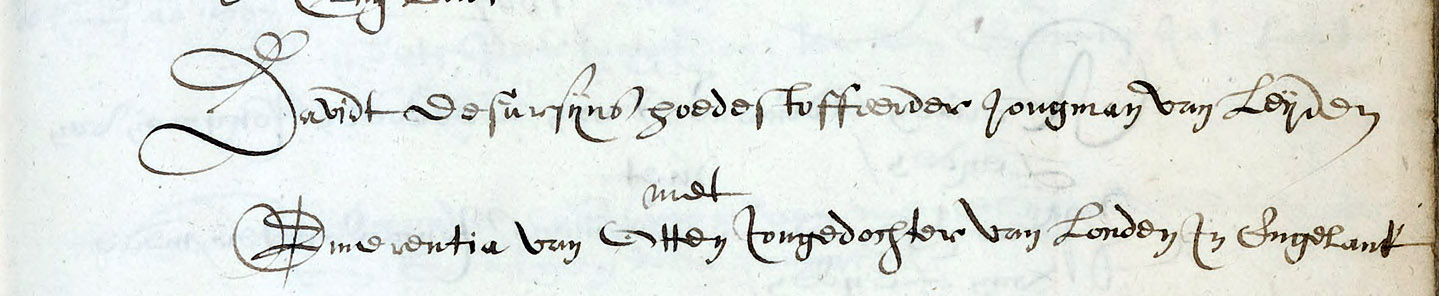 Davidt desursyns hoedestoffeerder Jongman van Leyden
met
Emerentia van Otten Jongedochter van Londen In Engelant